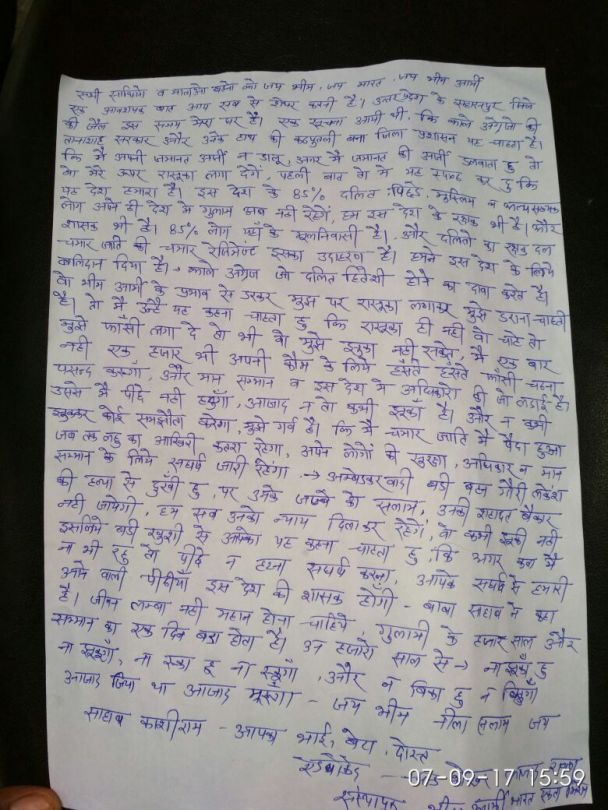 सभी साथियों व माताओं बहनों को जय भीम, जय भारत, जय भीम आर्मी
एक आवश्यक बात आप सब से शेयर करनी है। उत्तर प्रदेश के सहारनपुर जिले
की जेल इस समय मेरा घर है। एक सूचना आयी थी, कि काले अंग्रेजो की
तानाशाह सरकार और उनके हाथ की कठपुतली बना जिला प्रशासन यह चाहता है।
कि मैं अपनी जमानत अर्जी न डालू, अगर मैं जमानत की अर्जी डलवाता हु तो
वो मेरे ऊपर रासूका लगा देंगे, पहली बात तो मैं यह स्पष्ट कर दु कि
यह देश हमारा है। इस देश के 85% दलित, पिछडे, मुस्लिम व अल्पसंख्यक
लोग अपने ही देश में गुलाम बन नही रहेंगे, हम इस देश के रक्षक भी है। और
शासक भी है। 85% लोग यहाँ के मूलनिवासी है। और दलितो का रक्षक दल
चमार जाति की चमार रेजिमेंट इसका उदाहरण है। हमने इस देश के लिये
बलिदान दिया है। काले अंग्रेज जो दलित हितैषी होने का दावा करते है।
वो भीम आर्मी के प्रभाव से डरकर मुझ पर रासूका लगाकर मुझे डराना चाहती
है। तो मैं उन्हे यह कहना चाहता हु कि रासूका ही नही वो चाहे तो
मुझे फाँसी लगा दे तो भी वो मुझे झुका नही सकते, मैं एक बार
नही एक हजार भी अपनी कौम के लिये हँसते हँसते फाँसी चढ़ना
पसन्द करूगाँ, और मान सम्मान व इस देश में अधिकारो की जो लडाई है।
उससे मैं पीछे नही हटुगाँ, आजाद न तो कभी झुका है। और न कभी
झुककर कोई समझौता करेगा, मुझे गर्व है। कि मैं चमार जाति में पैदा हुआ
जब तक लहु का आखिरी कतरा रहेगा, अपने लोगों की सुरक्षा, अधिकार व मान
सम्मान के लिये संघर्ष जारी रहेगा → अम्बेडकरवादी बडी बहन गौरी लंकेश
की हत्या से दुखी हु, पर उनके जज्बे को सलाम, उनकी शहादत बेकार
नही जायेगी, हम सब उनको न्याय दिलाकर रहेंगे, वो कभी झुकी नही
इसलिये बडी खुशी से आपको यह कहना चाहता हु, कि अगर कल मैं
न भी रहु तो पीछे न हटना संघर्ष करना, आपके संघर्ष से हमारी
आने वाली पीढीयां इस देश की शासक होंगी - बाबा साहब ने कहा
है। जीवन लम्बा नही महान होना चाहिये, गुलामी के हजार साल और
सम्मान का एक दिन बडा होता है। उन हजारो साल से → ना झुका हु
ना झुकुगाँ, ना रुका हु ना रुकुगाँ, और न बिका हु न बिकुगाँ
आजाद जिया था आजाद मरुगाँ - जय भीम नीला सलाम जय
साहब कांशीराम - आपका भाई, बेटा, दोस्त
एडवोकेट
संस्थापक भीम आर्मी भारत एकता मिशन
07-09-17 15:59